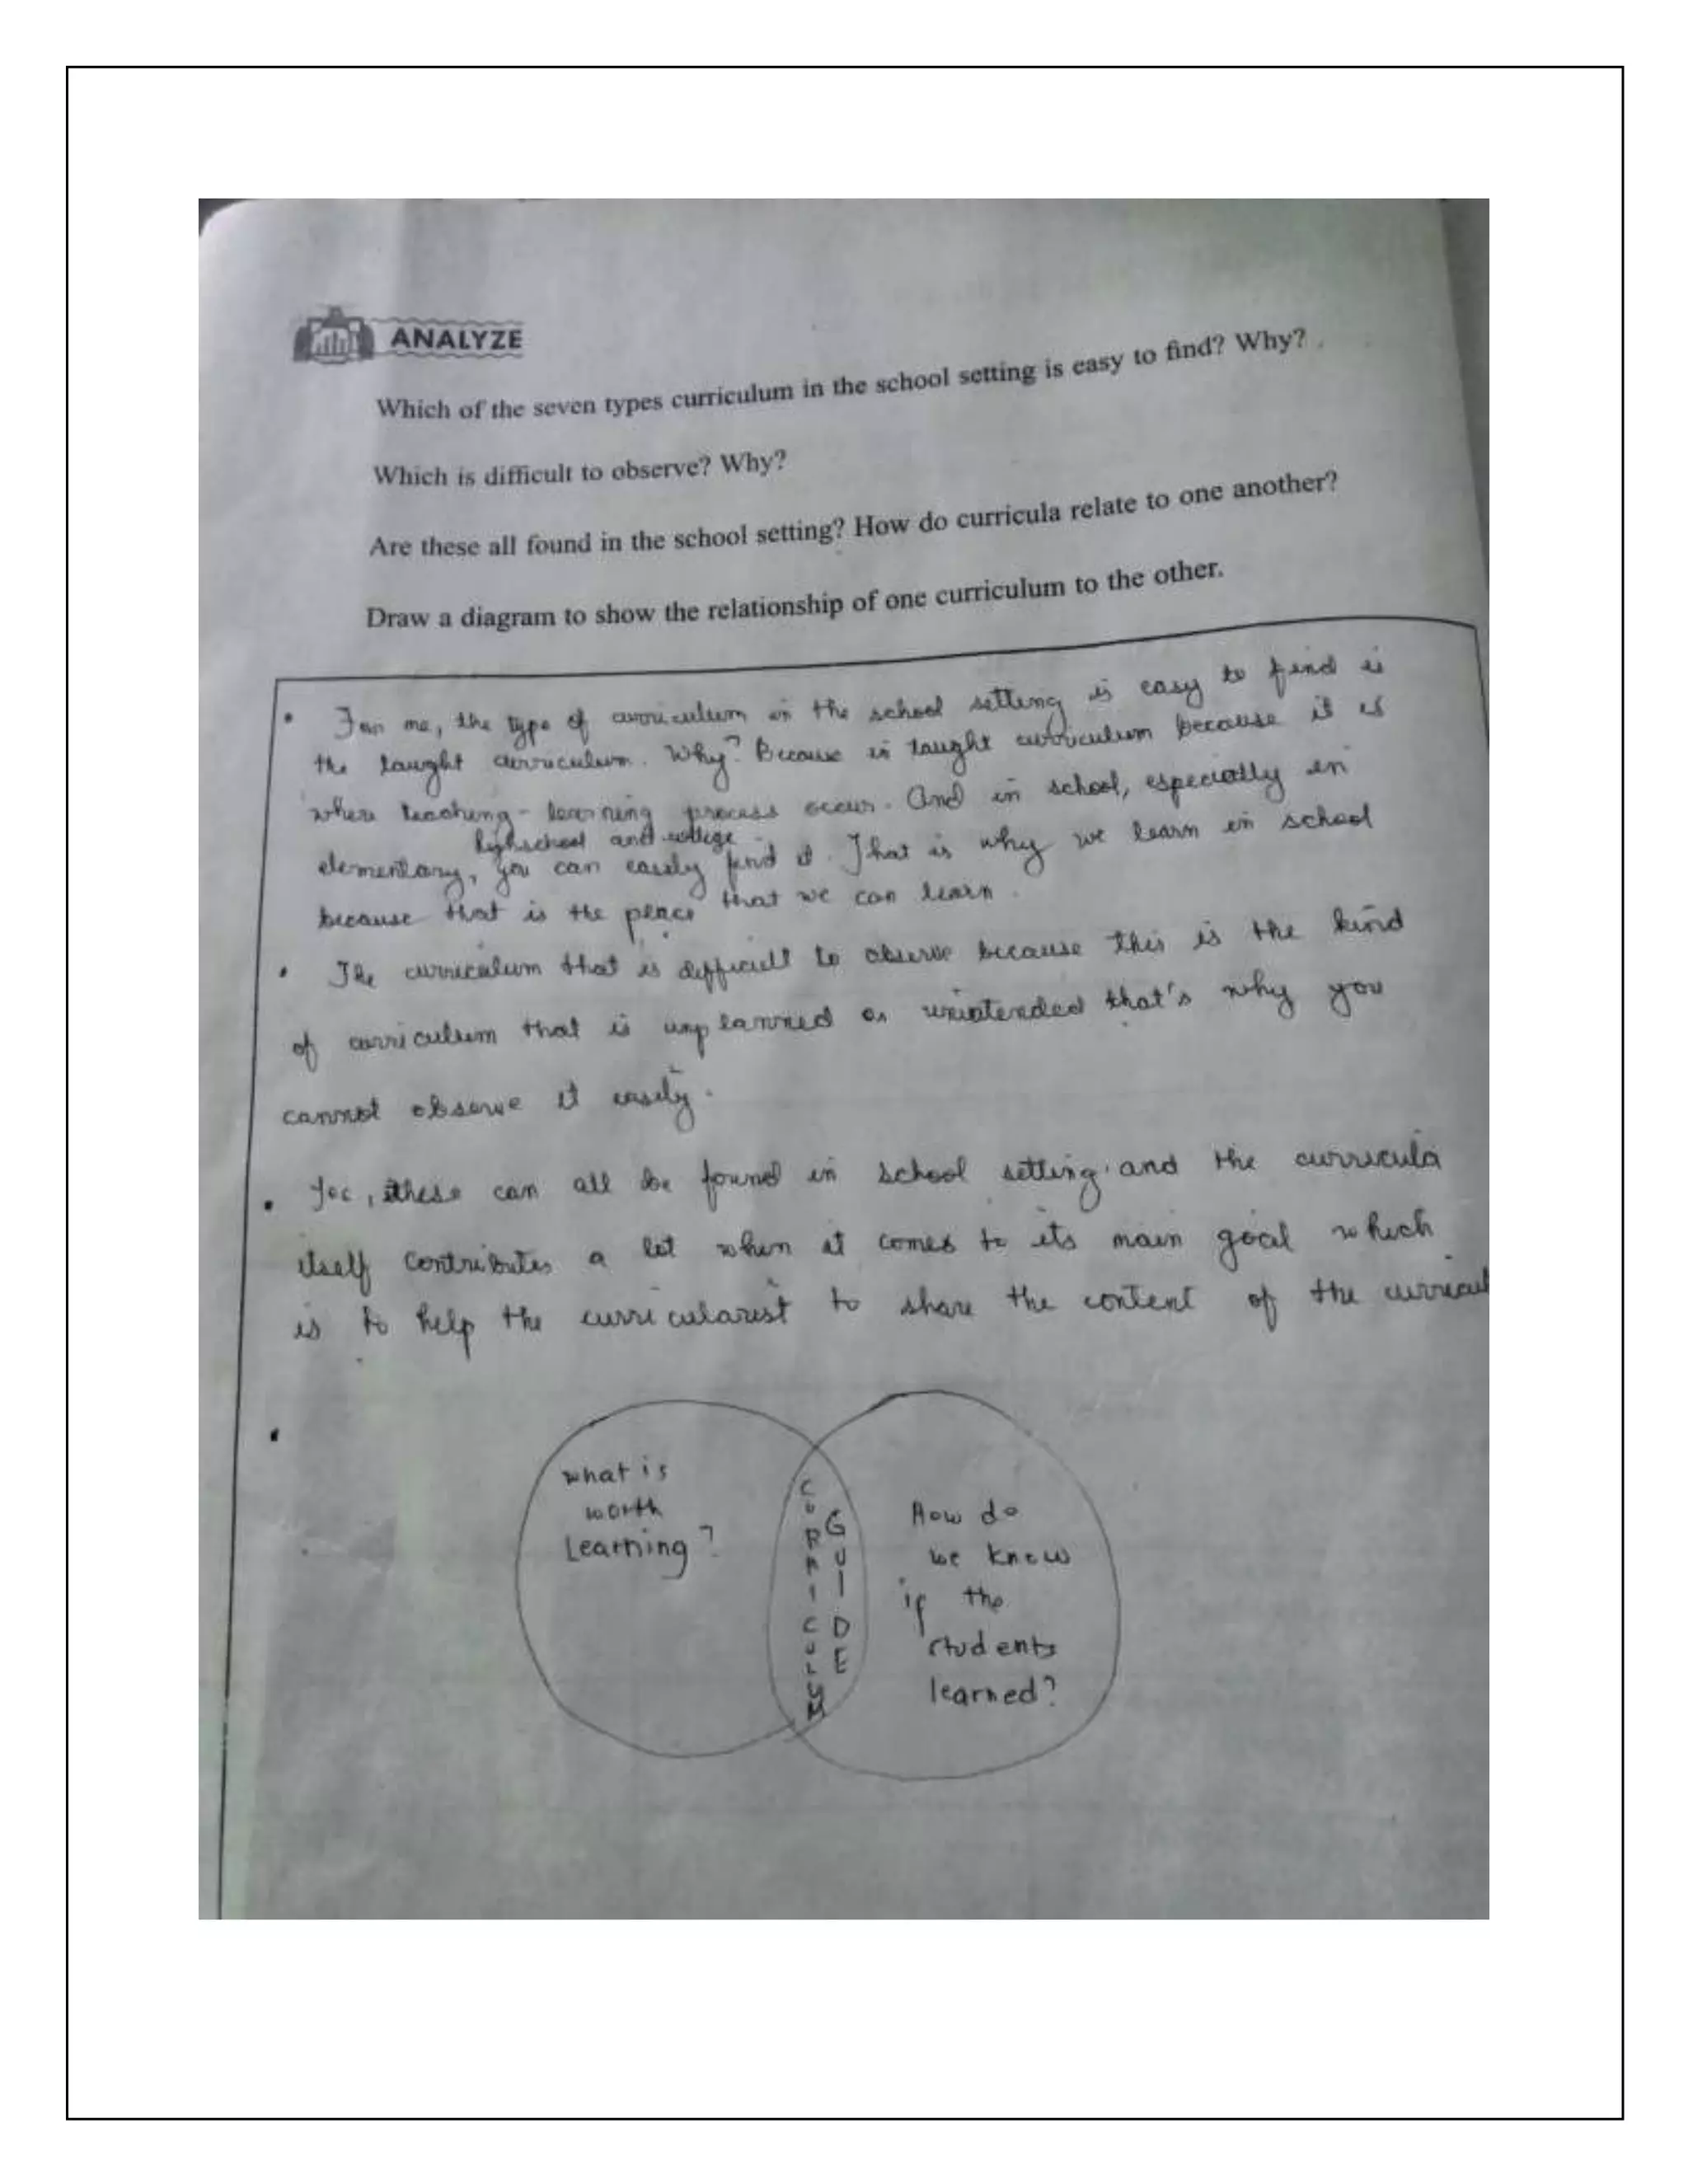 ANALYZE
Which of the seven types curriculum in the school setting is easy to find? Why?
Which is difficult to observe? Why?
Are these all found in the school setting? How do curricula relate to one another?
Draw a diagram to show the relationship of one curriculum to the other.
• For me, the type of curriculum in the school setting is easy to find is
the taught curriculum. Why? Because in taught curriculum because it is
where teaching-learning process occur. And in school, especially in
highschool and college
elementary, you can easily find it. That is why we learn in school
because that is the place that we can learn.
• The curriculum that is difficult to observe because this is the kind
of curriculum that is unplanned or unintended that's why you
cannot observe it easily.
• Yes, these can all be found in school setting and the curricula
itself contributes a lot when it comes to its main goal which
is to help the curricularist to share the content of the
•
What is
worth
Learning?
CURRICULUM
GUIDE
How do
we know
if the
students
learned?